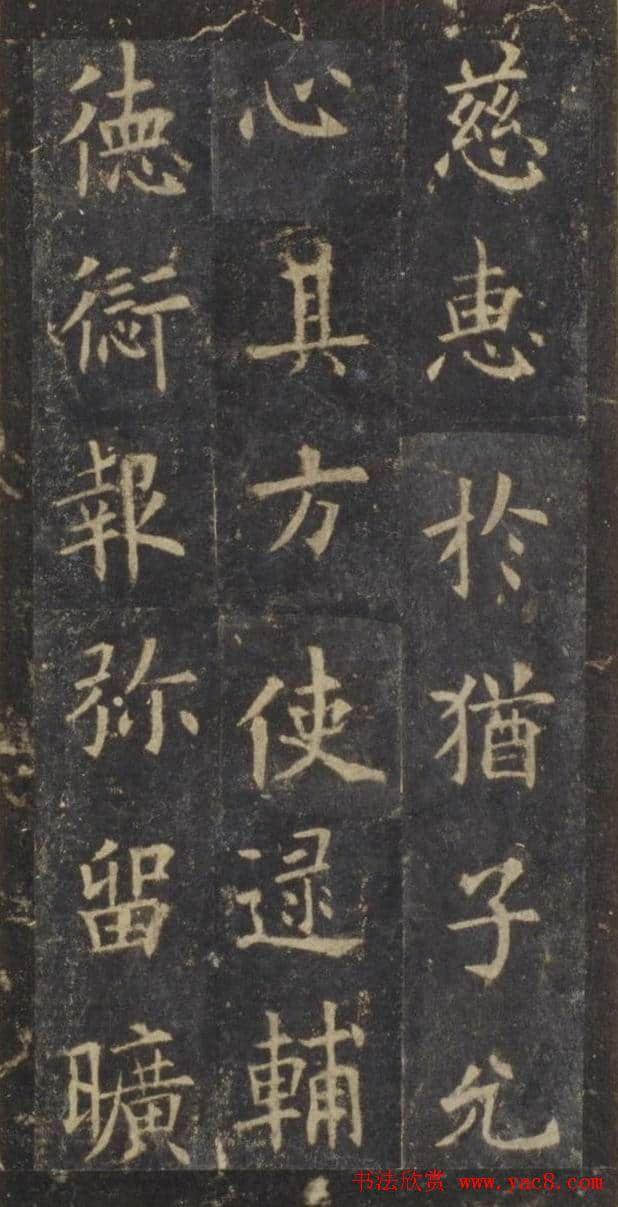 慈惠於猶子允
心具方使逯輔
徳衍報弥留曠
书法欣赏 www.yac8.com